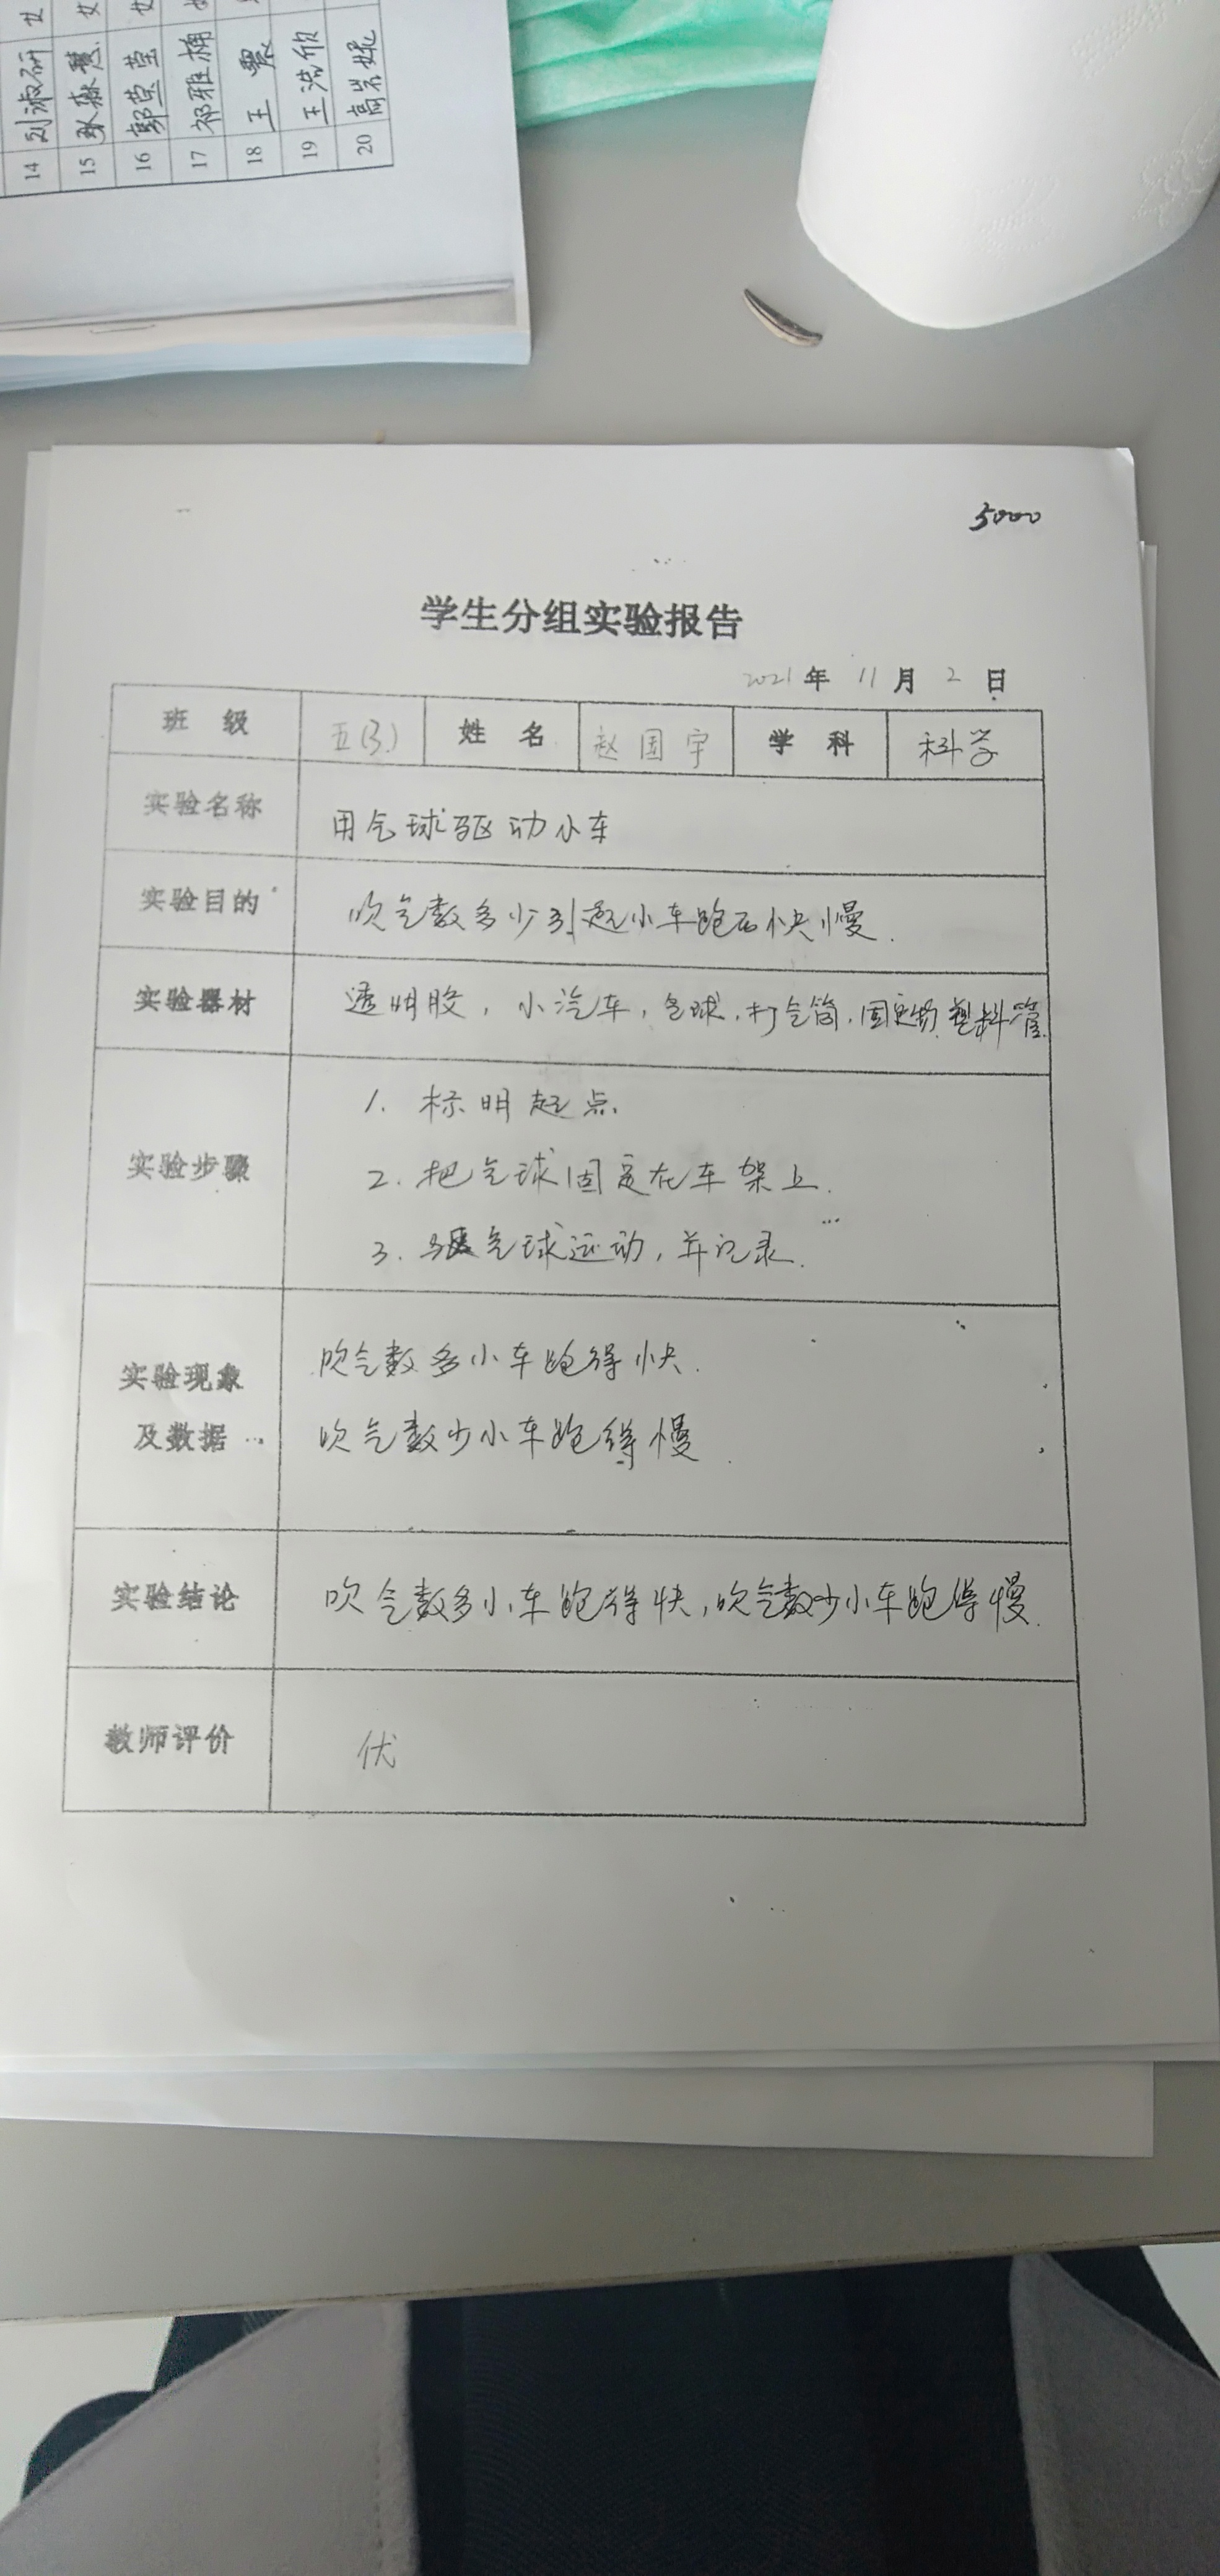 14 刘淑研 女
15 耿淼慧 女
16 郭莹莹 女
17 祁雅楠
18 王 景
19 王浩欣
20 高岩娣
5000
学生分组实验报告
2021年 11月 2日
班 级 五(3) 姓 名 赵国宇 学 科 科学
实验名称 用气球驱动小车
实验目的 吹气数多少引起小车跑的快慢.
实验器材 透明胶,小汽车,气球,打气筒,固定物 塑料管.
实验步骤
1. 标明起点.
2. 把气球固定在车架上.
3. 气球运动,并记录.
实验现象及数据
吹气数多小车跑得快.
吹气数少小车跑得慢.
实验结论 吹气数多小车跑得快,吹气数少小车跑得慢.
教师评价 优